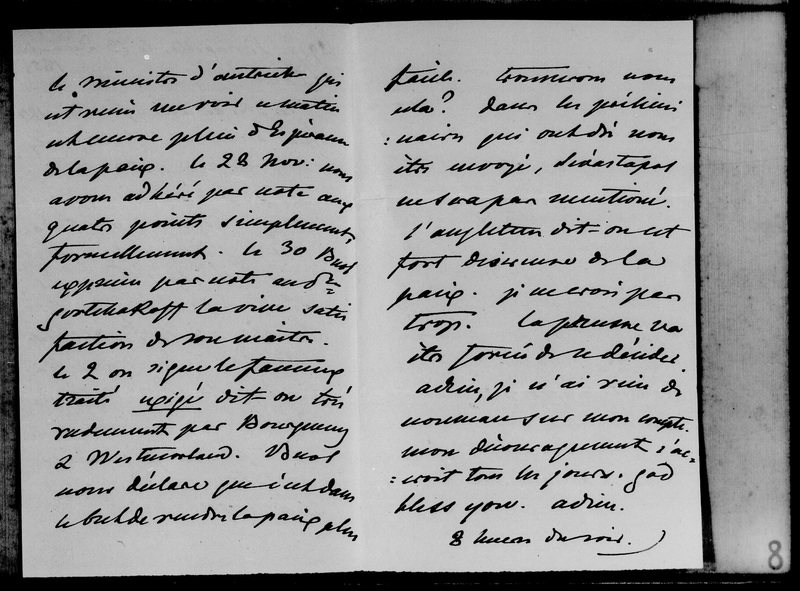 le ministre d'autriche qui
est venu me voir ce matin
est encore plein d'Espérance
de la paix. le 28 Nov: nous
avons adhéré par note aux
quatre points simplement,
formellement. le 30 Buol
exprime par note au Pce
gortchakoff la vive satis
faction de son maitre.
le 2 on signe le fameux
traité exigé dit-on très
rudement par Bourqueney
& Westmorland. Buol
nous déclare que c'est dans
le but de rendre la paix plus
facile. trouverons nous
cela? dans les prélimi
:naires qui ont dû nous
être envoyé, Sévastopol
ne sera pas mentioné.
l'angleterre dit-on est
fort désireuse de la
paix. je ne crois pas
trop. la prusse va
être forcée de se décider.
adieu, je n'ai rien de
nouveau sur mon compte.
mon découragement s'ac=
:croit tous les jours. god
bless you. adieu.
8 heures du soir.)
8